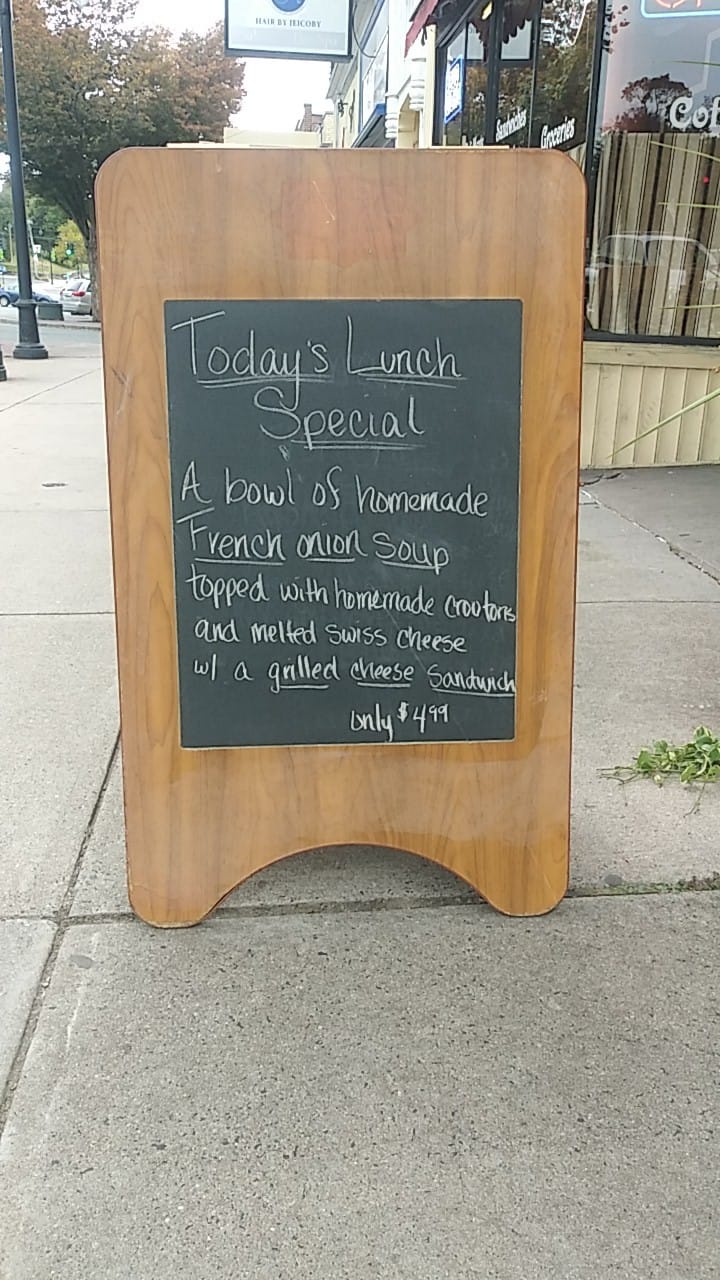 HAIR BY HEICOBY
Sandwiches
Groceries
Today's Lunch
Special
A bowl of homemade
French onion soup
topped with homemade croutons
and melted swiss cheese
w/ a grilled cheese sandwich
only $4.99